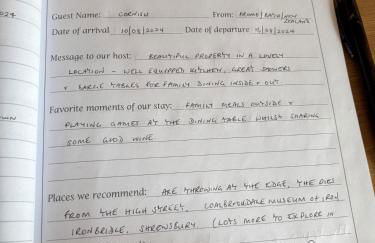 2024
Guest Name: CORNISH From: FROME / BATH / NEW ZEALAND
Date of arrival 10/08/2024 Date of departure 15/08/2024
Message to our host: BEAUTIFUL PROPERTY IN A LOVELY
LOCATION - WELL EQUIPPED KITCHEN, GREAT SHOWERS
+ LARGE TABLES FOR FAMILY DINING INSIDE + OUT
Favorite moments of our stay: FAMILY MEALS OUTSIDE +
PLAYING GAMES AT THE DINING TABLE WHILST SHARING
SOME GOOD WINE
Places we recommend: AXE THROWING AT THE EDGE, THE PIES
FROM THE HIGH STREET, COALBROOKDALE MUSEUM OF IRON
IRONBRIDGE, SHREWSBURY (LOTS MORE TO EXPLORE IN